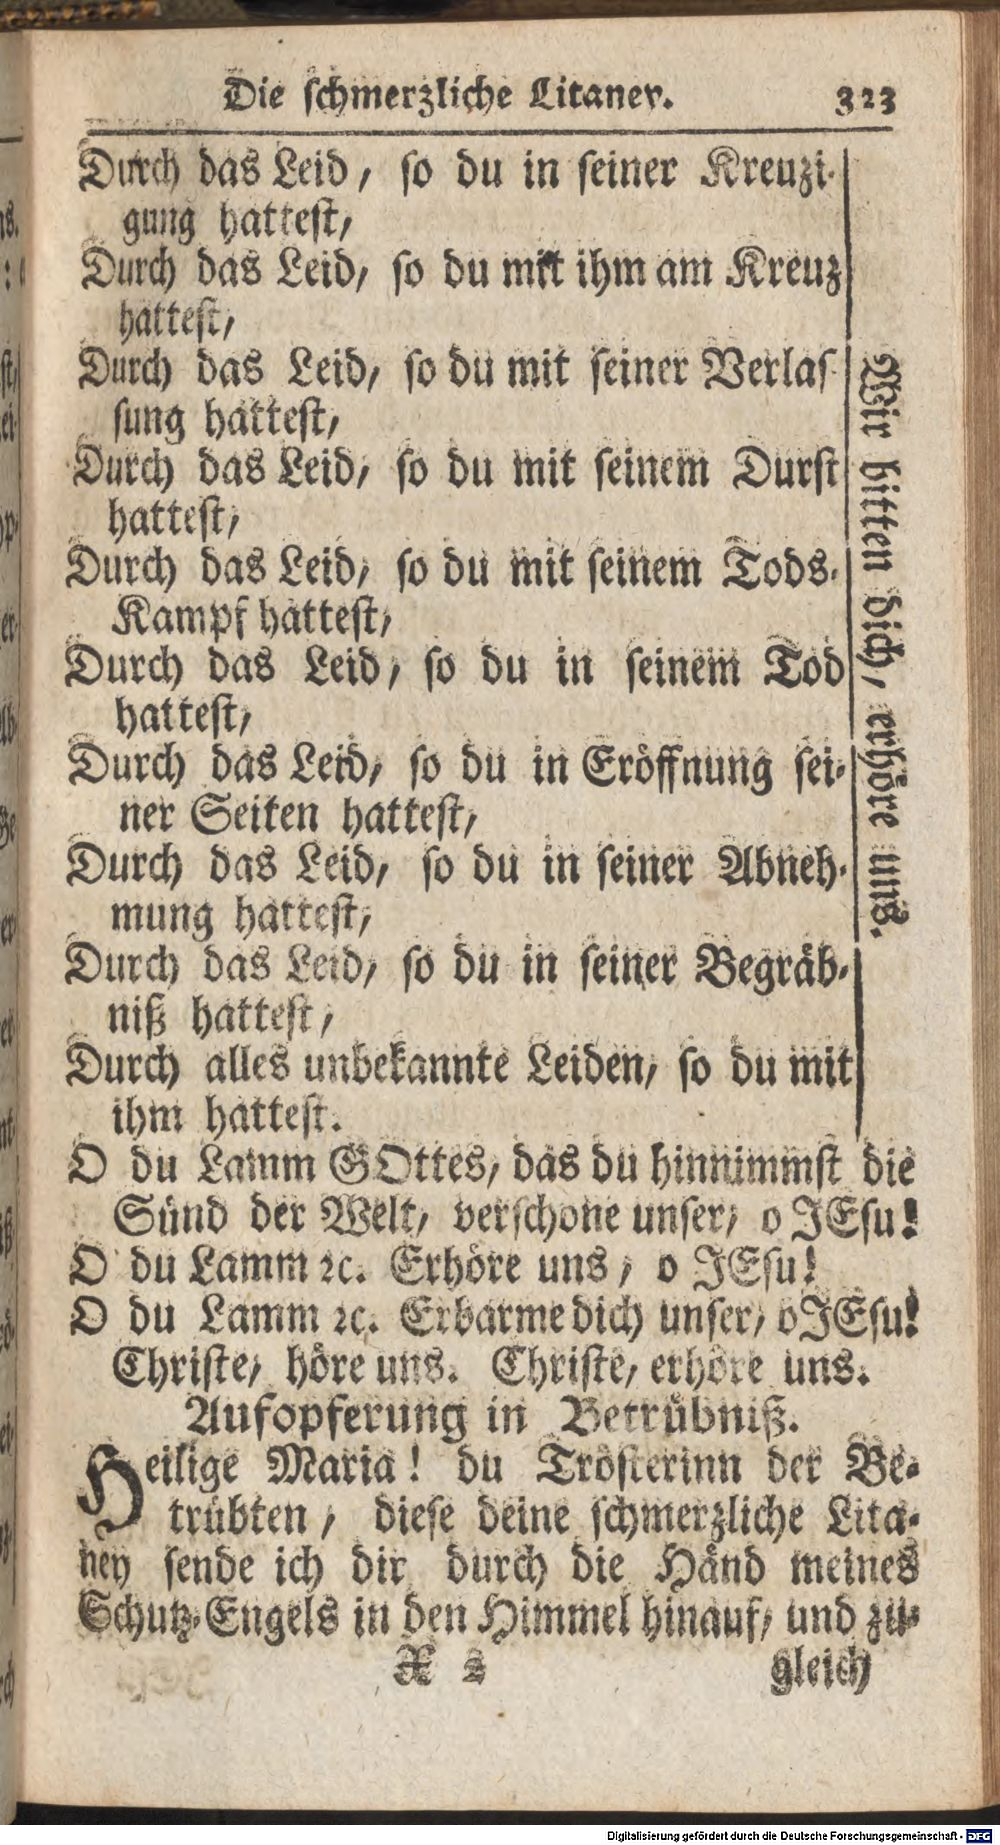 Die schmerzliche Litaney. 323
Durch das Leid, so du in seiner Kreuzi-
gung hattest,
Durch das Leid, so du mit ihm am Kreuz
hattest,
Durch das Leid, so du mit seiner Verlas-
sung hattest,
Durch das Leid, so du mit seinem Durst
hattest,
Durch das Leid, so du mit seinem Tods-
Kampf hattest,
Durch das Leid, so du in seinem Tod
hattest,
Durch das Leid, so du in Eröffnung sei-
ner Seiten hattest,
Durch das Leid, so du in seiner Abneh-
mung hattest,
Durch das Leid, so du in seiner Begräb-
niß hattest,
Durch alles unbekannte Leiden, so du mit
ihm hattest.
Wir bitten dich, erhöre uns.
O du Lamm GOttes, das du hinnimmst die
Sünd der Welt, verschone unser, o JEsu!
O du Lamm ꝛc. Erhöre uns, o JEsu!
O du Lamm ꝛc. Erbarme dich unser, o JEsu!
Christe, höre uns. Christe, erhöre uns.
Aufopferung in Betrübniß.
Heilige Maria! du Trösterinn der Be-
trübten, diese deine schmerzliche Lita-
ney sende ich dir durch die Händ meines
Schutz-Engels in den Himmel hinauf, und zu-
X 2 gleich
Digitalisierung gefördert durch die Deutsche Forschungsgemeinschaft - DFG